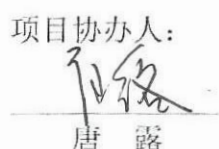 项目协办人：
唐露